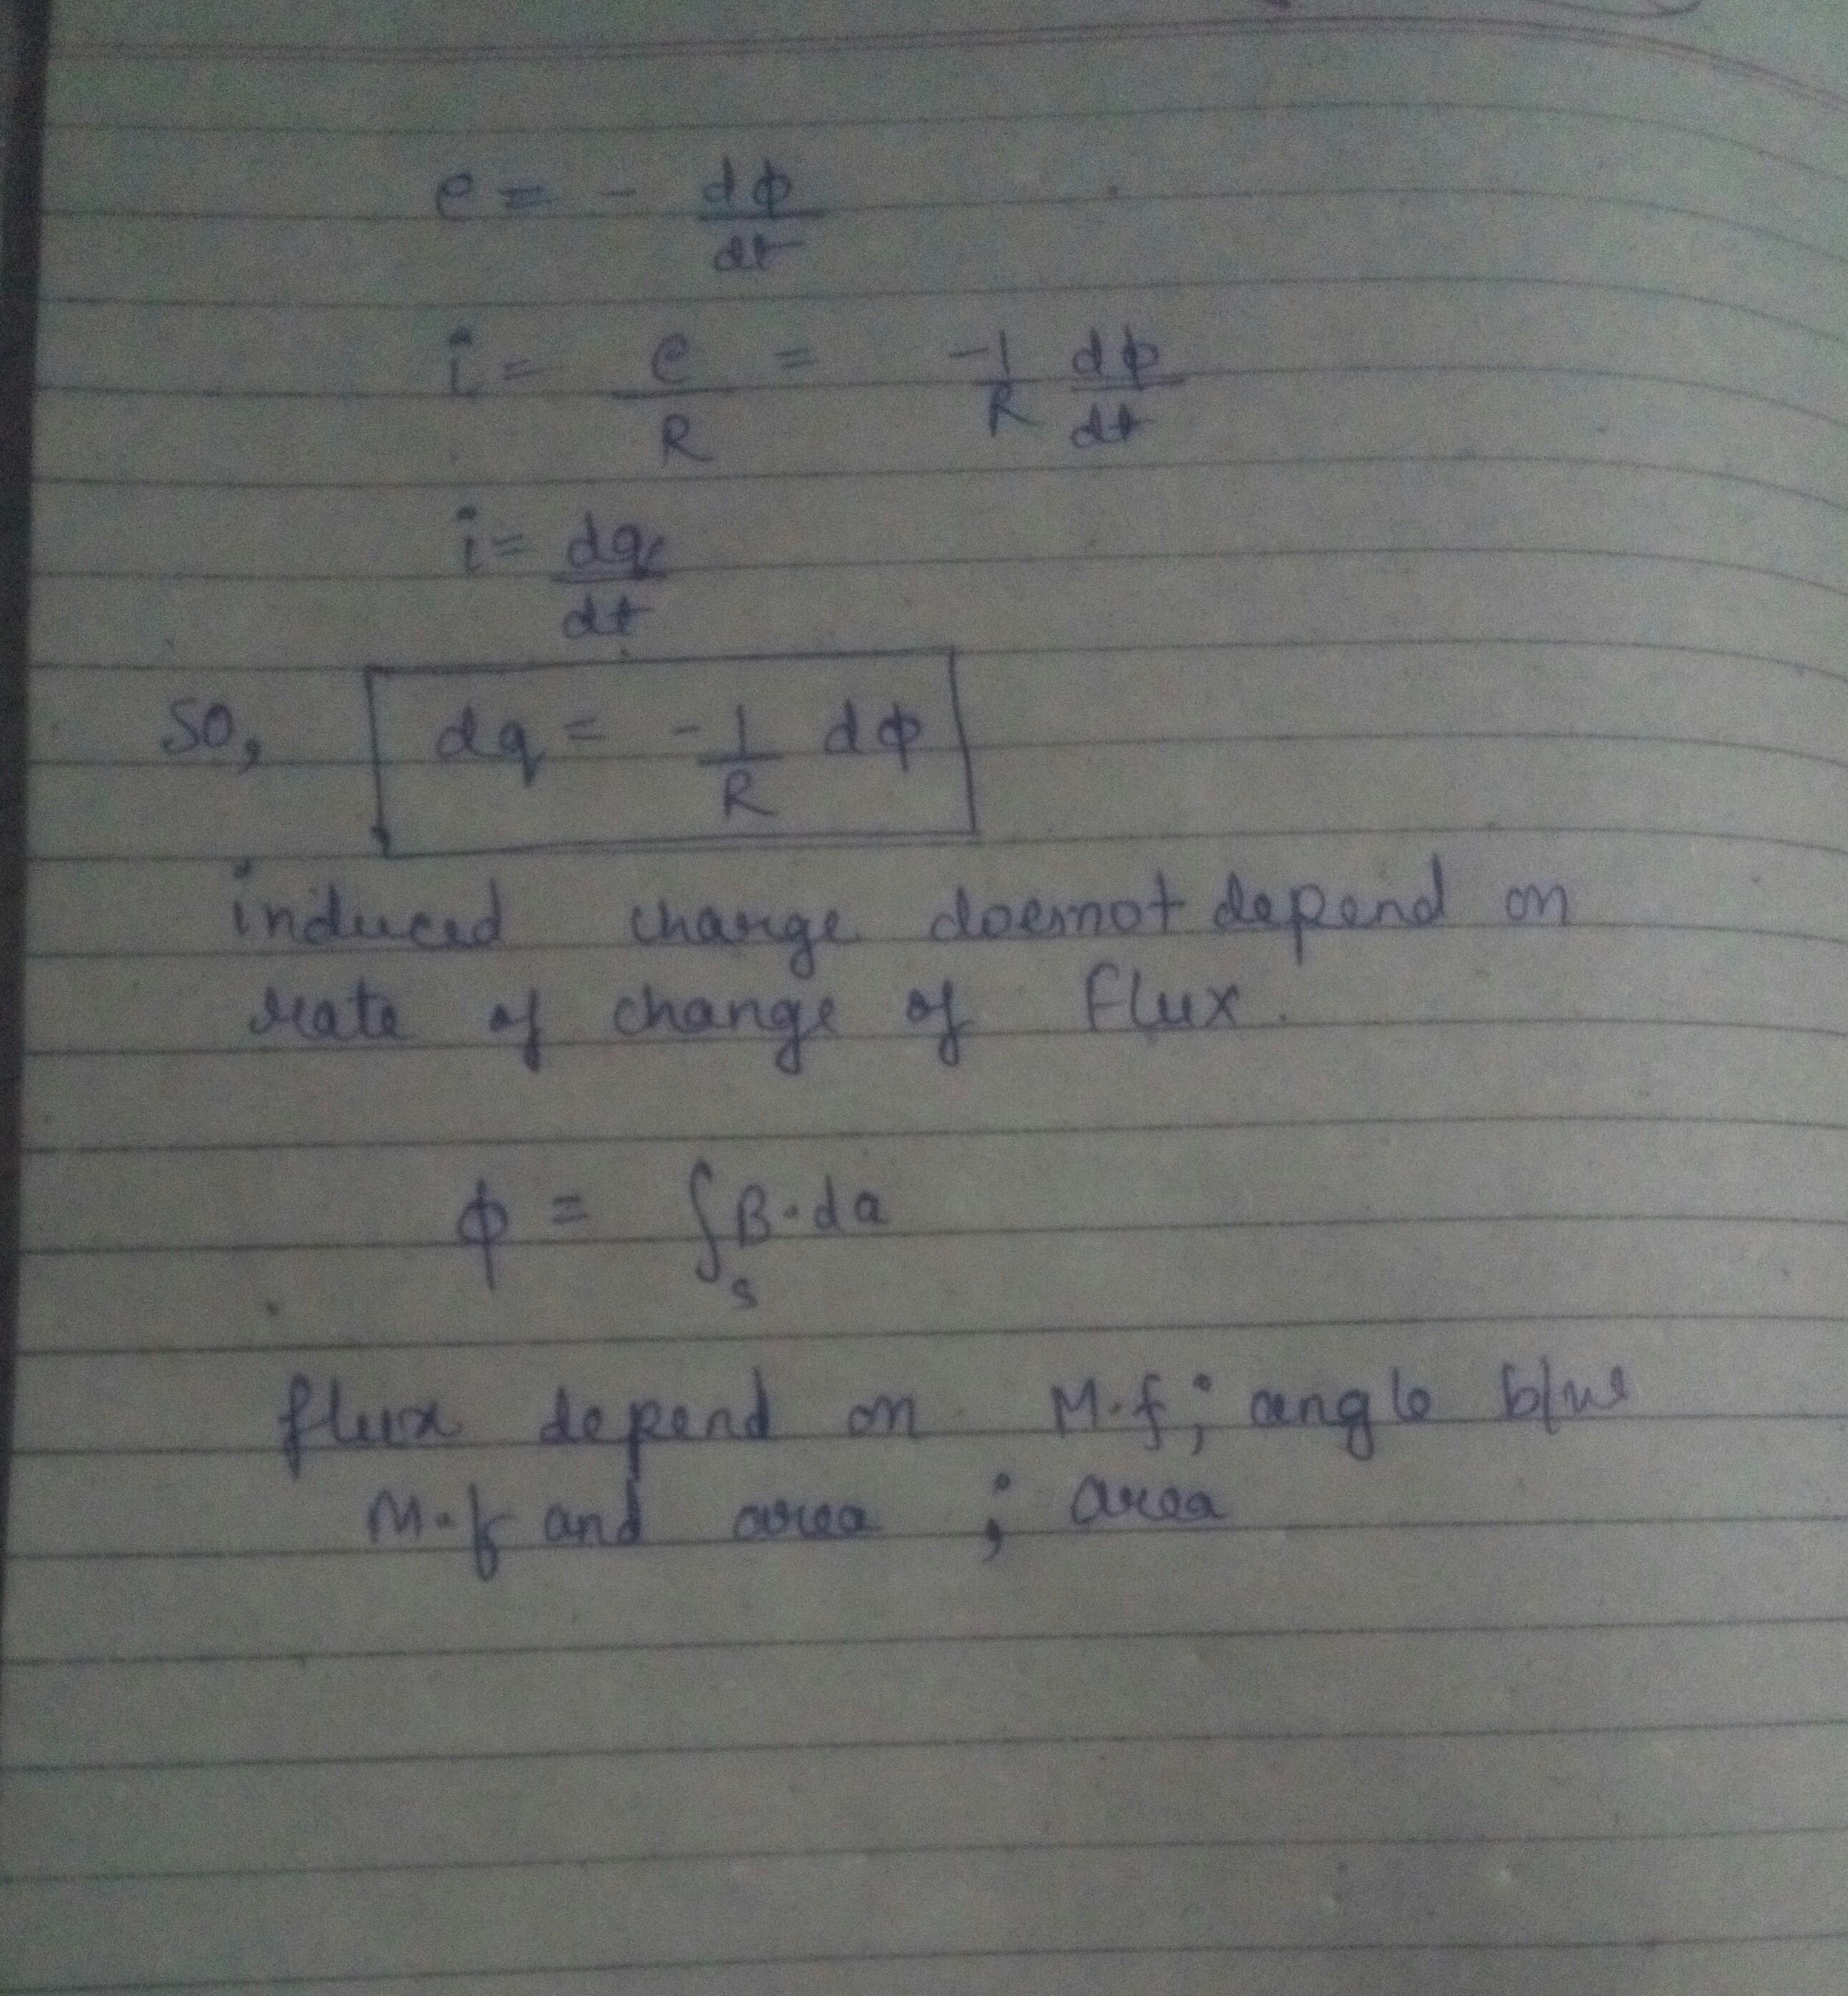 e = - dφ/dt
i = e/R = -1/R dφ/dt
i = dq/dt
so, dq = - 1/R dφ
induced charge doesnot depend on
rate of change of flux.
φ = ∫s B·da
flux depend on M.f; angle b/w
M.f and area ; area